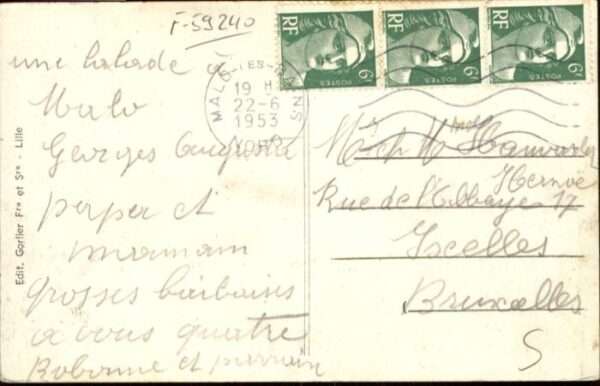 F-59240
RF
6F
POSTES
RF
6F
POSTES
RF
6F
POSTES
MALO-LES-BAINS
19 H
22-6
1953
NORD
une balade
Malo
Georges
perper et
maman
grosses baibaises
a vous quatre
Bobonne et parrain
Edit. Gorlier Fre et Sre - Lille
Rue de l'Abbaye 17
Ixelles
Bruxelles
S